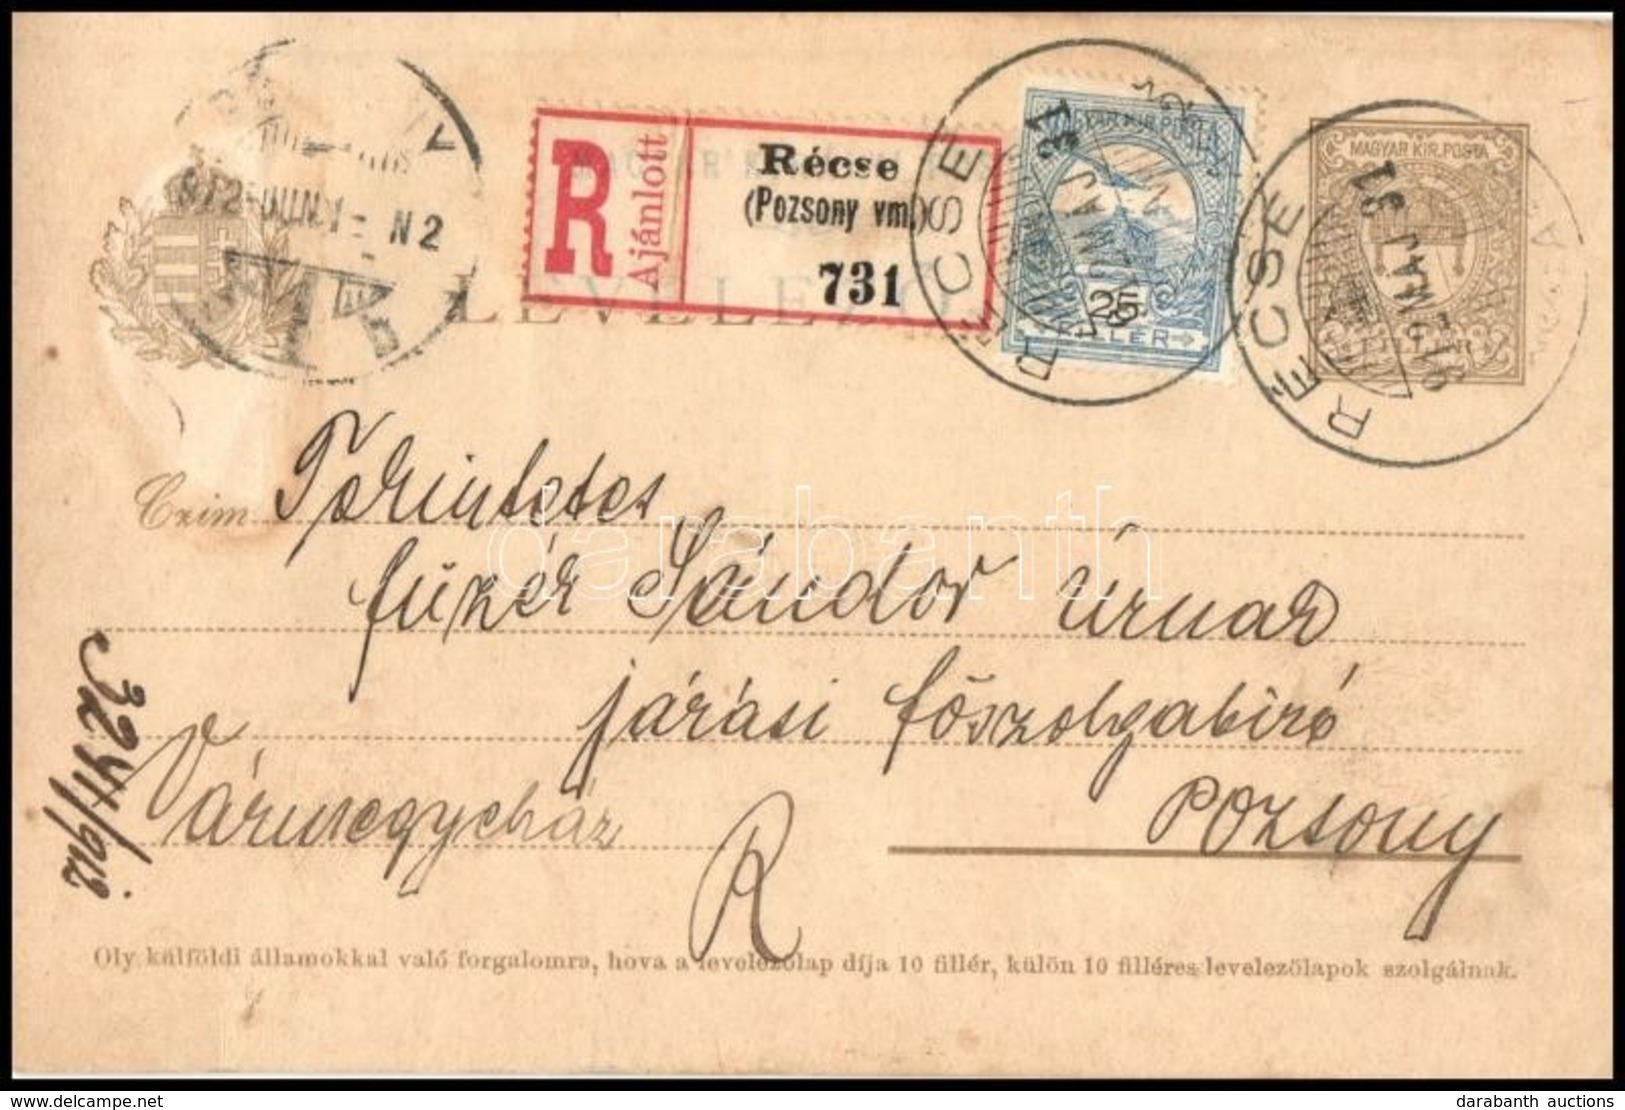 MAGYAR KIR. POSTA
R
Ajánlott
Récse
(Pozsony vm.)
731
MAGYAR KIR. POSTA
25
FILLÉR
MAGYAR KIR. POSTA
FILLÉR
RÉCSE
912 MÁJ 31
RÉCSE
912 MÁJ 31
912 JUN. 1 N2
LEVELEZŐ
Czim Tekintetes
Fükér Sándor úrnak
járási főszolgabiró
Vármegyeház Pozsony
R
3244/912
Oly külföldi államokkal való forgalomra, hova a levelezőlap díja 10 fillér, külön 10 filléres levelezőlapok szolgálnak.
darabanth
delcampe.net
darabanth auctions